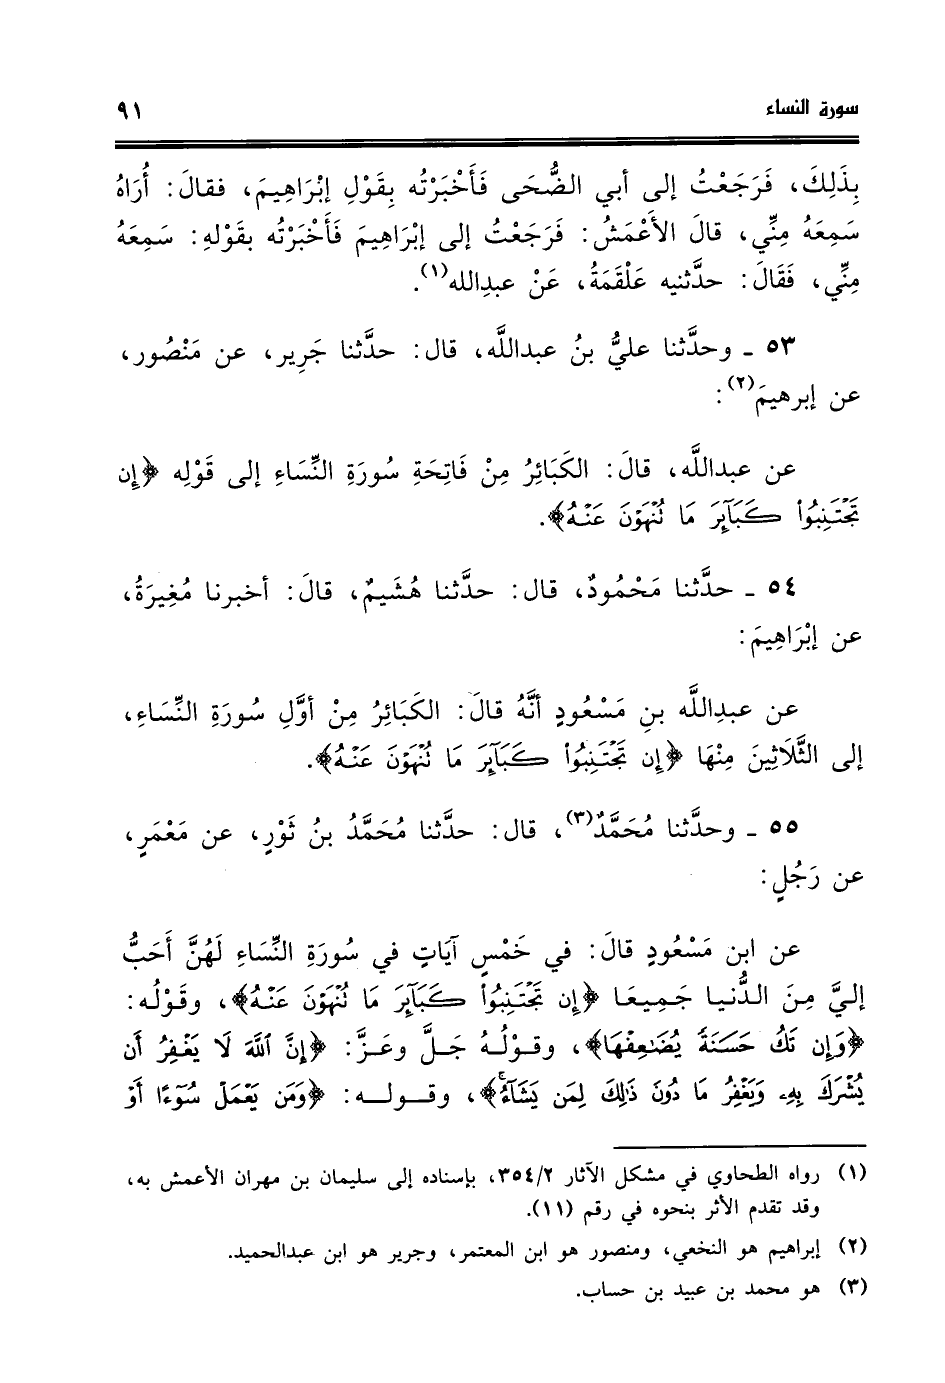 سورة النساء ٩١
بِذَلِكَ، فَرَجَعْتُ إلى أبي الضُّحَى فَأَخْبَرْتُه بِقَوْلِ إبْرَاهِيمَ، فقالَ: أُرَاهُ
سَمِعَهُ مِنِّي، قالَ الأَعْمَشُ: فَرَجَعْتُ إلى إبْرَاهِيمَ فَأَخْبَرْتُه بقَوْلهِ: سَمِعَهُ
مِنِّي، فَقَالَ: حدَّثنيه عَلْقَمَةُ، عَنْ عبدِالله(١).
٥٣ ـ وحدَّثنا عليُّ بنُ عبداللَّه، قال: حدَّثنا جَرِير، عن مَنْصُور،
عن إبرهيمَ(٢):
عن عبداللَّه، قالَ: الكَبَائِرُ مِنْ فَاتِحَةِ سُورَةِ النِّسَاءِ إلى قَوْلِه ﴿إِن
تَجْتَنِبُوا۟ كَبَآئِرَ مَا تُنْهَوْنَ عَنْهُ﴾.
٥٤ ـ حدَّثنا مَحْمُودٌ، قال: حدَّثنا هُشَيمٌ، قالَ: أخبرنا مُغِيرَةُ،
عن إبْرَاهِيمَ:
عن عبدِاللَّه بنِ مَسْعُودٍ أنَّهُ قالَ: الكَبَائِرُ مِنْ أوَّلِ سُورَةِ النِّسَاءِ،
إلى الثَّلَاثِينَ مِنْهَا ﴿إِن تَجْتَنِبُوا۟ كَبَآئِرَ مَا تُنْهَوْنَ عَنْهُ﴾.
٥٥ ـ وحدَّثنا مُحَمَّدٌ(٣)، قال: حدَّثنا مُحَمَّدُ بنُ ثَوْرٍ، عن مَعْمَرٍ،
عن رَجُلٍ:
عن ابن مَسْعُودٍ قالَ: في خَمْسِ آيَاتٍ في سُورَةِ النِّسَاءِ لَهُنَّ أَحَبُّ
إليَّ مِنَ الدُّنيا جَمِيعَا ﴿إِن تَجْتَنِبُوا۟ كَبَآئِرَ مَا تُنْهَوْنَ عَنْهُ﴾، وقَوْلُه:
﴿وَإِن تَكُ حَسَنَةً يُضَٰعِفْهَا﴾، وقولُهُ جَلَّ وعَزَّ: ﴿إِنَّ ٱللَّهَ لَا يَغْفِرُ أَن
يُشْرَكَ بِهِۦ وَيَغْفِرُ مَا دُونَ ذَٰلِكَ لِمَن يَشَآءُۚ﴾، وقوله: ﴿وَمَن يَعْمَلْ سُوٓءًا أَوْ
(١) رواه الطحاوي في مشكل الآثار ٣٥٤/٢، بإسناده إلى سليمان بن مهران الأعمش به،
وقد تقدم الأثر بنحوه في رقم (١١).
(٢) إبراهيم هو النخعي، ومنصور هو ابن المعتمر، وجرير هو ابن عبدالحميد.
(٣) هو محمد بن عبيد بن حساب.